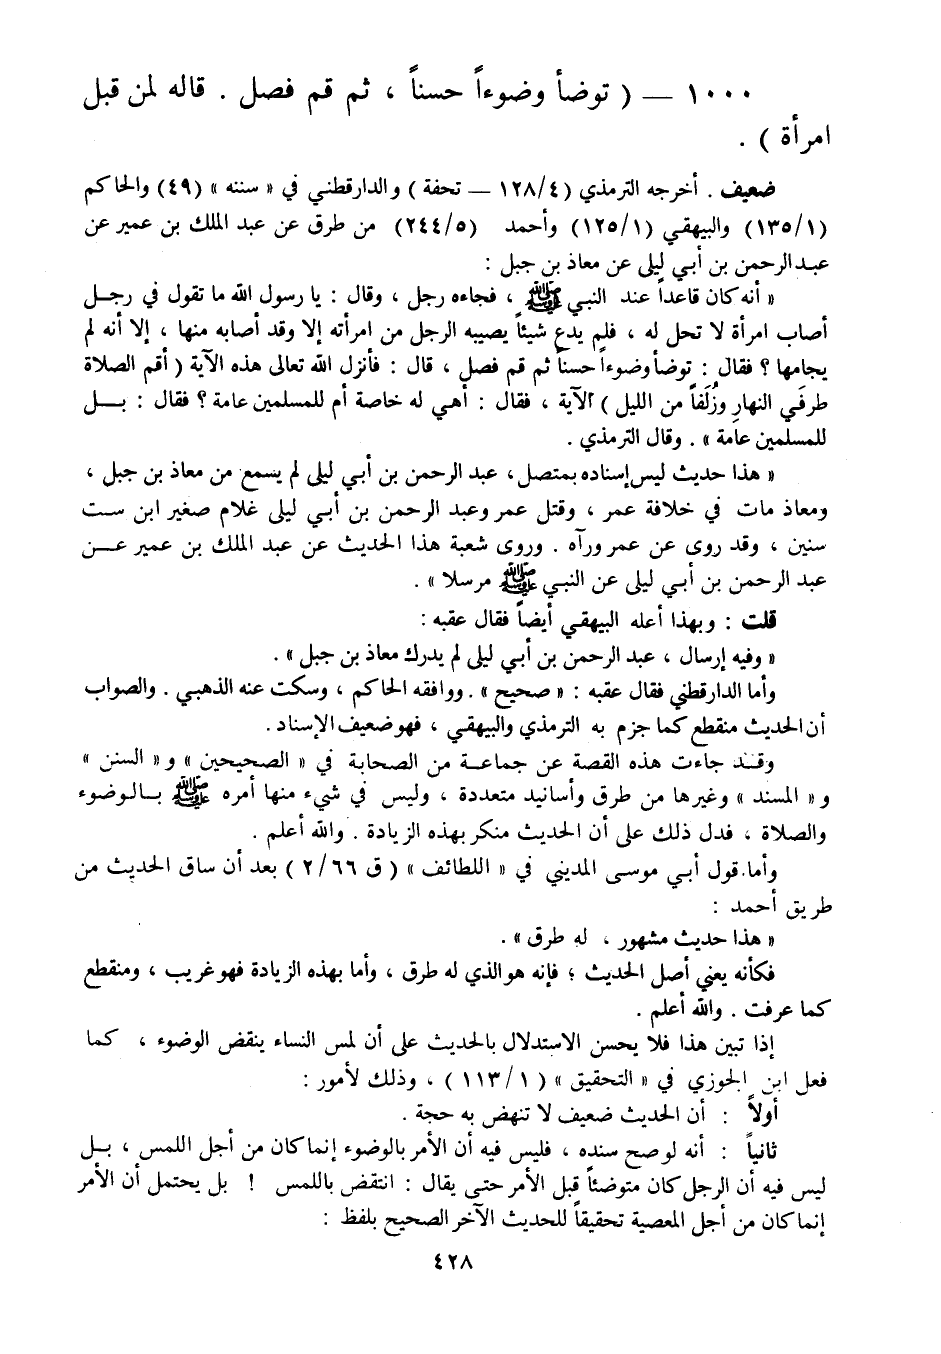 ١٠٠٠ — ( توضأ وضوءاً حسناً ، ثم قم فصل . قاله لمن قبل
امرأة ) .
ضعيف . أخرجه الترمذي (٤/١٢٨ — تحفة ) والدارقطني في « سننه » (٤٩) والحاكم
(١/١٣٥) والبيهقي (١/١٢٥) وأحمد (٥/٢٤٤) من طرق عن عبد الملك بن عمير عن
عبد الرحمن بن أبي ليلى عن معاذ بن جبل :
« أنه كان قاعداً عند النبي ﷺ ، فجاءه رجل ، وقال : يا رسول الله ما تقول في رجل
أصاب امرأة لا تحل له ، فلم يدع شيئاً يصيبه الرجل من امرأته إلا وقد أصابه منها ، إلا أنه لم
يجامها ؟ فقال : توضأ وضوءاً حسناً ثم قم فصل ، قال : فأنزل الله تعالى هذه الآية ( أقم الصلاة
طرفي النهارِ وزُلَفاً من الليل ) الآية ، فقال : أهي له خاصة أم للمسلمين عامة ؟ فقال : بل
للمسلمين عامة » . وقال الترمذي .
« هذا حديث ليس إسناده بمتصل ، عبد الرحمن بن أبي ليلى لم يسمع من معاذ بن جبل ،
ومعاذ مات في خلافة عمر ، وقتل عمر وعبد الرحمن بن أبي ليلى غلام صغير ابن ست
سنين ، وقد روى عن عمر ورآه . وروى شعبة هذا الحديث عن عبد الملك بن عمير عن
عبد الرحمن بن أبي ليلى عن النبي ﷺ مرسلا » .
قلت : وبهذا أعله البيهقي أيضاً فقال عقبه :
« وفيه إرسال ، عبد الرحمن بن أبي ليلى لم يدرك معاذ بن جبل » .
وأما الدارقطني فقال عقبه : « صحيح » . ووافقه الحاكم ، وسكت عنه الذهبي . والصواب
أن الحديث منقطع كما جزم به الترمذي والبيهقي ، فهو ضعيف الإسناد .
وقد جاءت هذه القصة عن جماعة من الصحابة في « الصحيحين » و « السنن »
و « المسند » وغيرها من طرق وأسانيد متعددة ، وليس في شيء منها أمره ﷺ بالوضوء
والصلاة ، فدل ذلك على أن الحديث منكر بهذه الزيادة . والله أعلم .
وأما قول أبي موسى المديني في « اللطائف » ( ق ٦٦/٢ ) بعد أن ساق الحديث من
طريق أحمد :
« هذا حديث مشهور ، له طرق » .
فكأنه يعني أصل الحديث ؛ فإنه هو الذي له طرق ، وأما بهذه الزيادة فهو غريب ، ومنقطع
كما عرفت . والله أعلم .
إذا تبين هذا فلا يحسن الاستدلال بالحديث على أن لمس النساء ينقض الوضوء ، كما
فعل ابن الجوزي في « التحقيق » ( ١/١١٣ ) ، وذلك لأمور :
أولاً : أن الحديث ضعيف لا تنهض به حجة .
ثانياً : أنه لو صح سنده ، فليس فيه أن الأمر بالوضوء إنما كان من أجل اللمس ، بل
ليس فيه أن الرجل كان متوضئاً قبل الأمر حتى يقال : انتقض باللمس ! بل يحتمل أن الأمر
إنما كان من أجل المعصية تحقيقاً للحديث الآخر الصحيح بلفظ :
٤٢٨